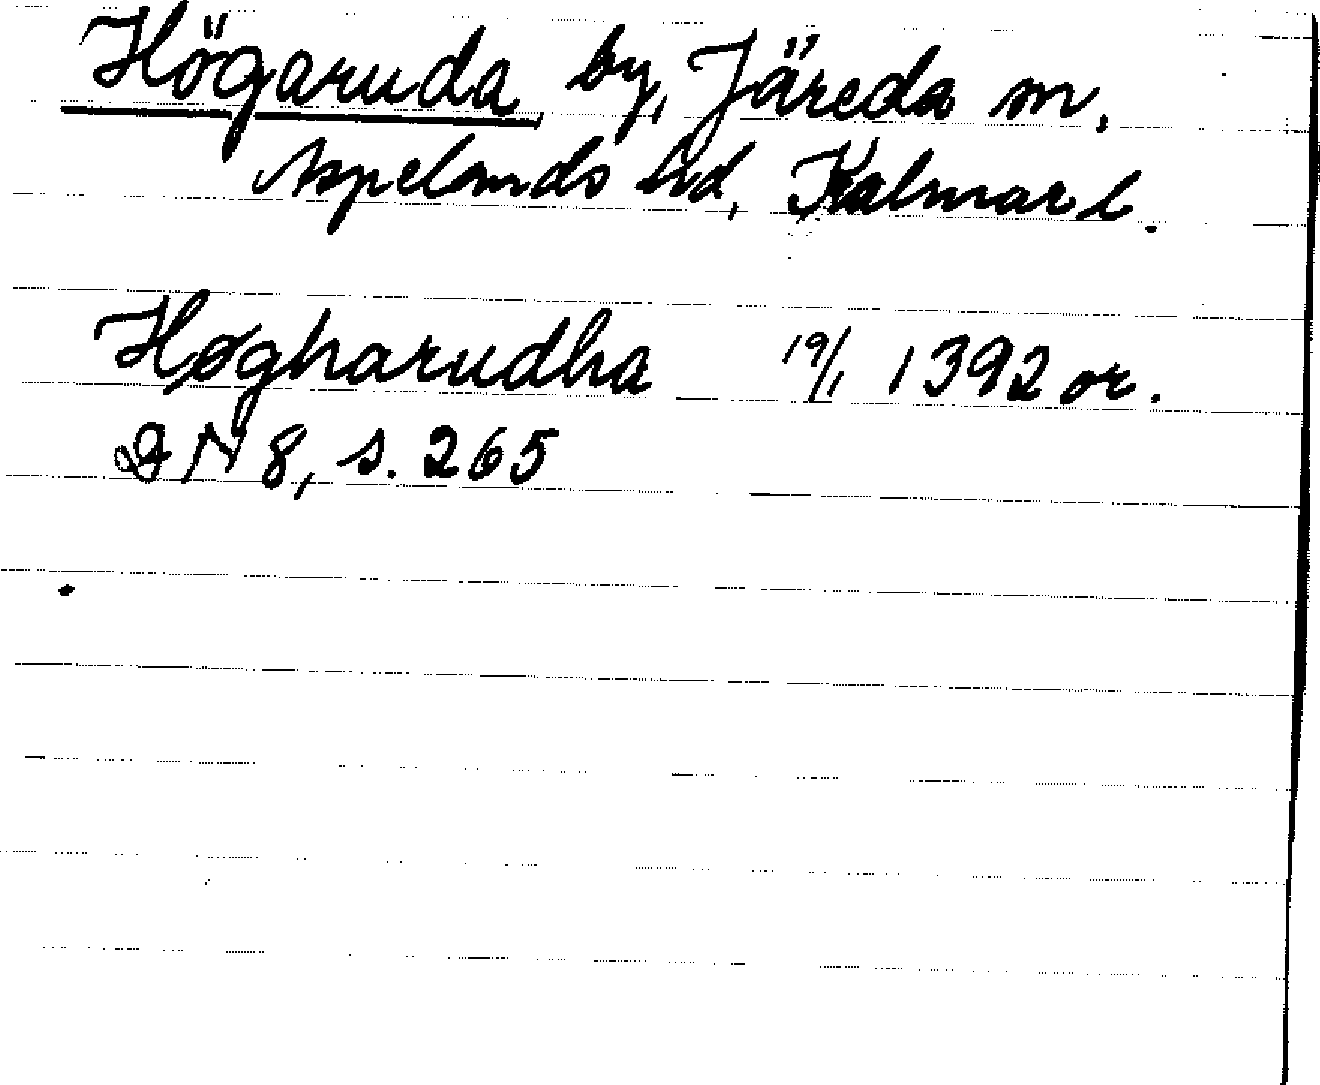 Högaruda by, Järeda sn,
Aspelands hd, Kalmar l.
Høgharudha 19/1 1392 or.
DN 8, s. 265